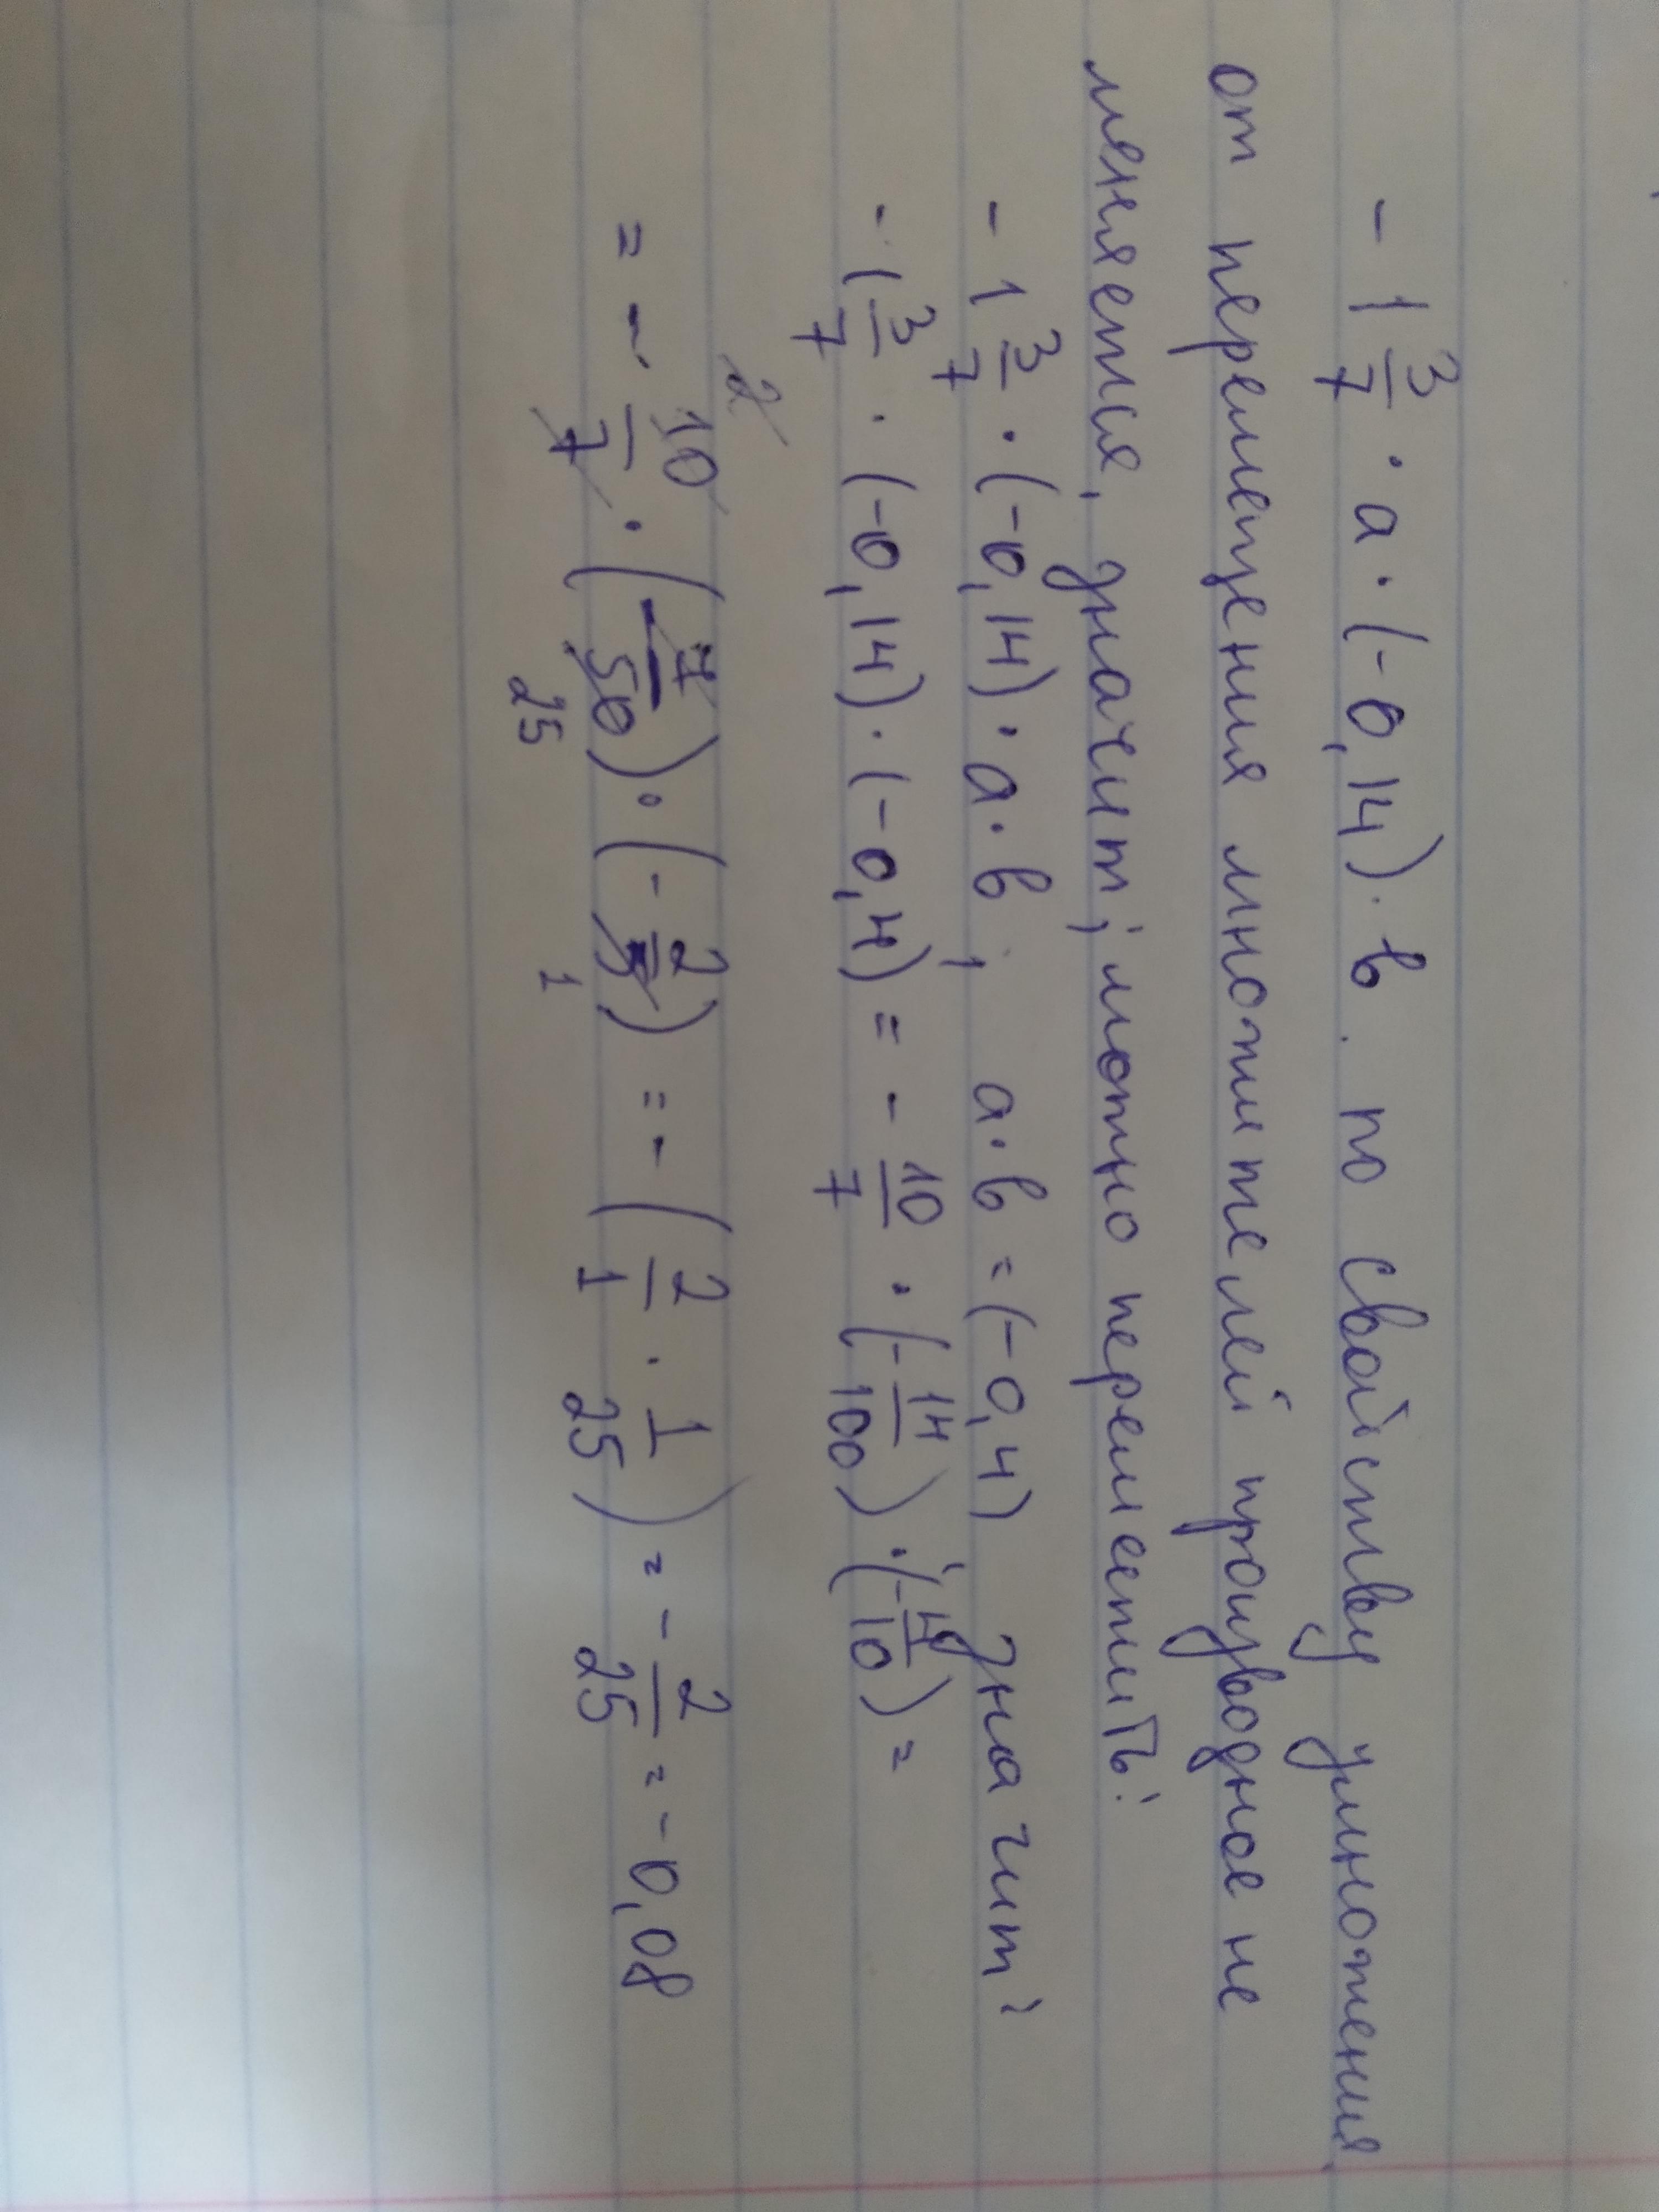 - 1 3/7 · a · (-0,14) · в . по свойству умножения
от перемещения множителей производное не
меняется, значит, можно переместить:
- 1 3/7 · (-0,14) · a · в ; a · в = (-0,4) значит:
- 1 3/7 · (-0,14) · (-0,4) = - 10/7 · (- 14/100) · (- 4/10) =
= - 10/7 · (- 7/50) · (- 2/5) = - (2/1 · 1/25) = - 2/25 = -0,08
2
25
1